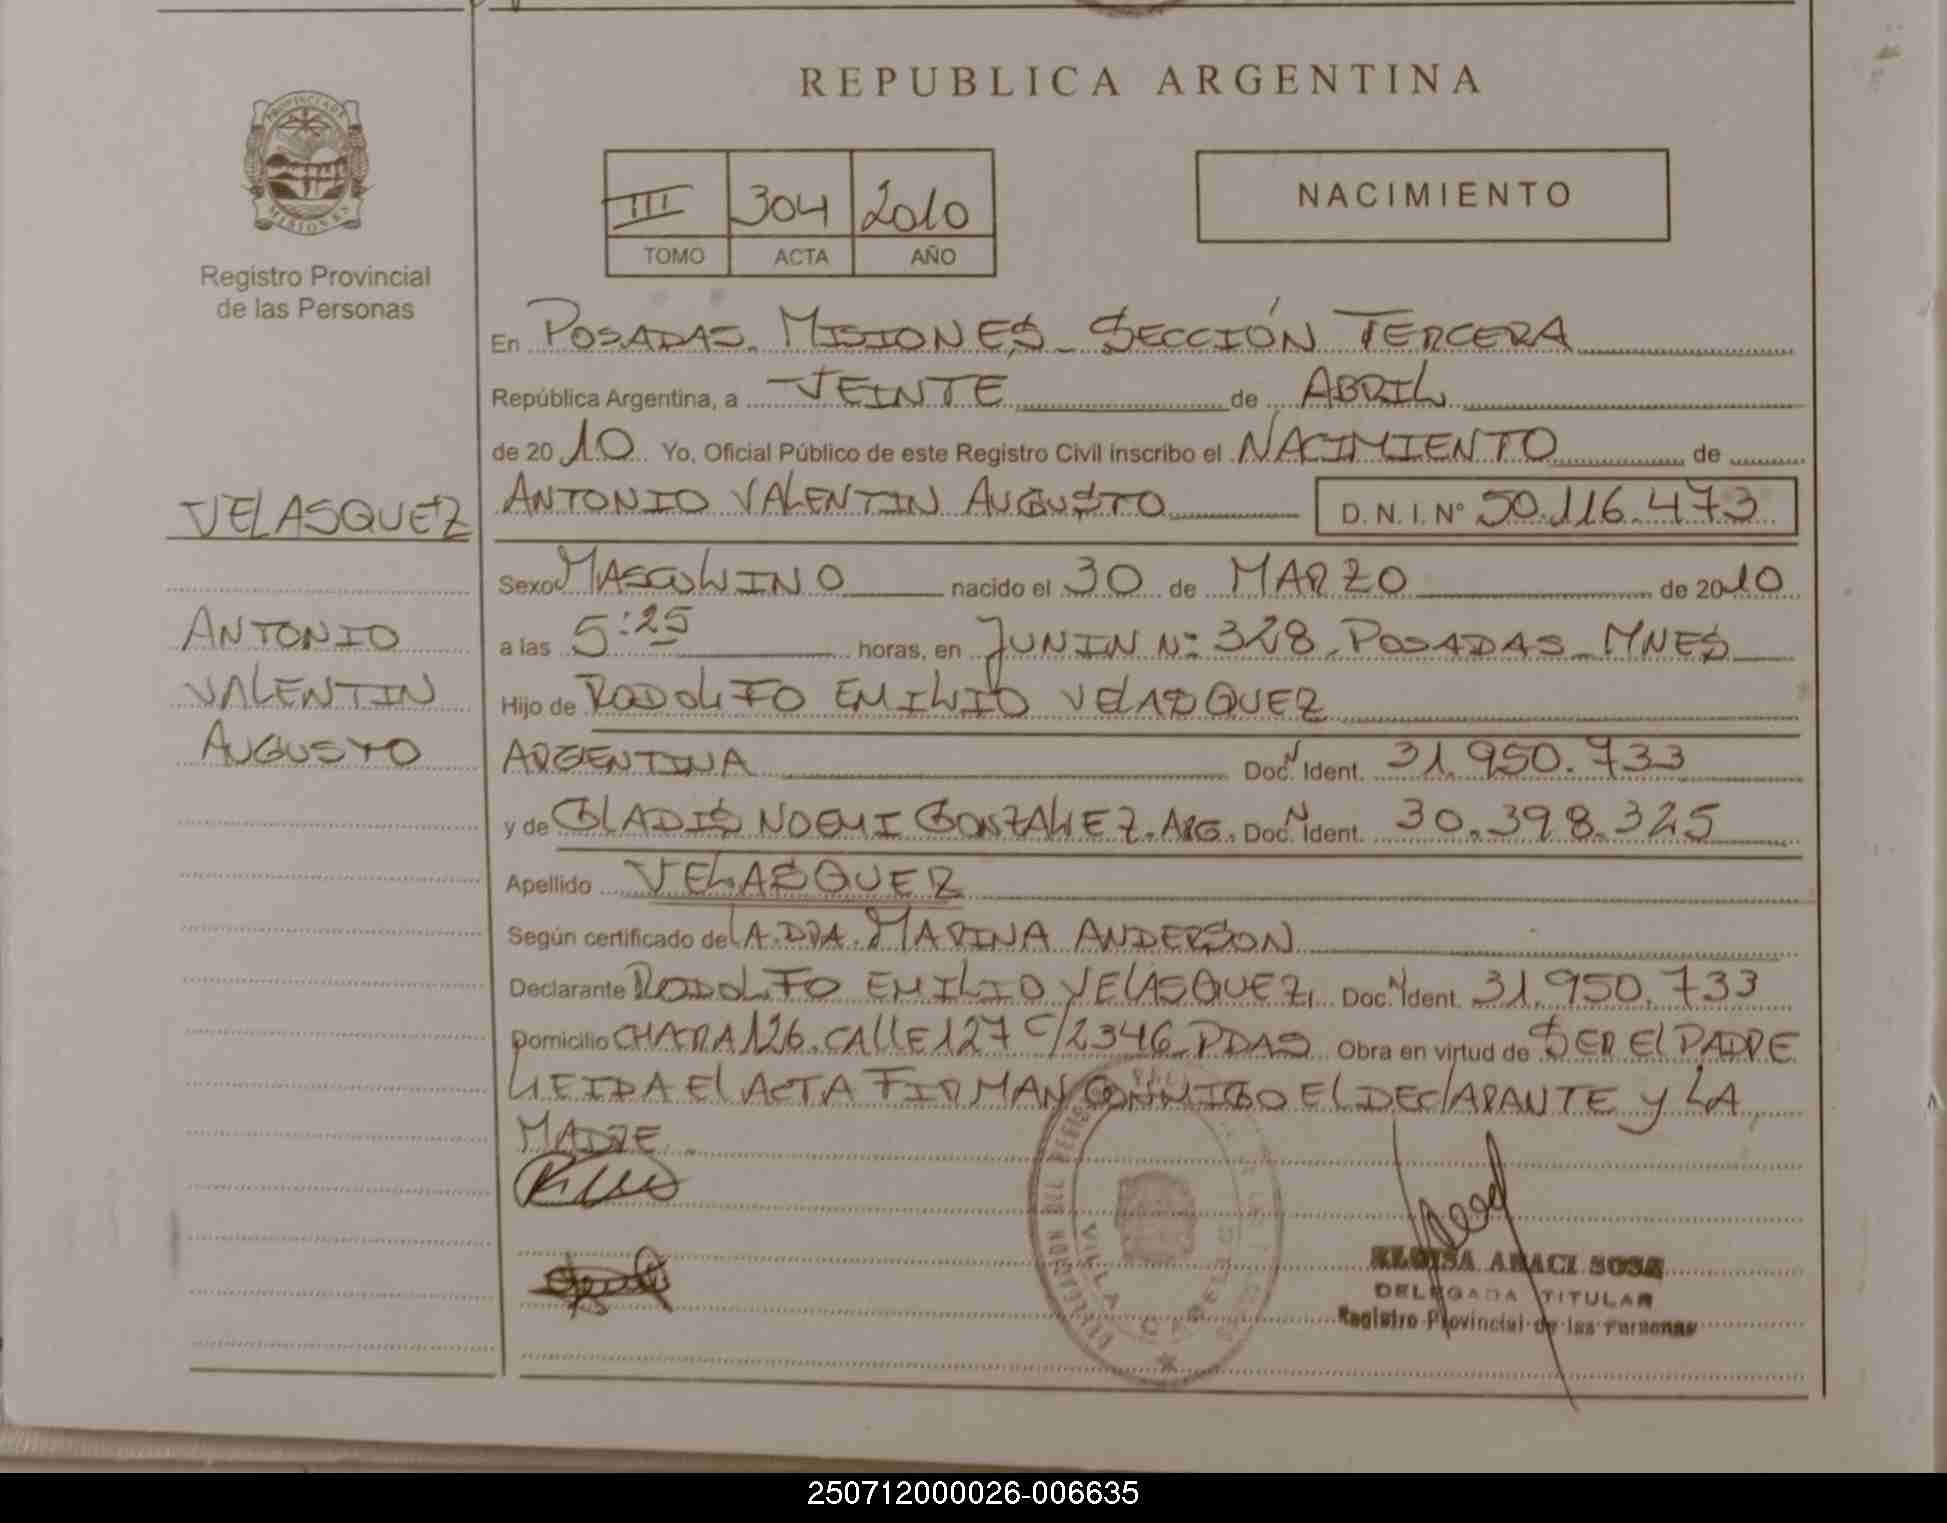 REPUBLICA ARGENTINA
PROVINCIA DE
MISIONES
Registro Provincial
de las Personas
III 304 2010
TOMO ACTA AÑO
NACIMIENTO
En POSADAS. MISIONES_ SECCIÓN TERCERA
República Argentina, a VEINTE de ABRIL
de 2010 Yo, Oficial Público de este Registro Civil inscribo el NACIMIENTO de
VELASQUEZ
ANTONIO VALENTIN AUGUSTO D.N.I. N° 50.116.473
Sexo MASCULINO nacido el 30 de MARZO de 2010
ANTONIO
a las 5:25 horas, en JUNIN N: 328. POSADAS_ MNES
VALENTIN
Hijo de RODOLFO EMILIO VELASQUEZ
AUGUSTO
ARGENTINA Doc. N Ident. 31.950.733
y de GLADIS NOEMI GONZALEZ. ARG. Doc. N Ident. 30.398.325
Apellido VELASQUEZ
Según certificado de LA.DRA. MARINA ANDERSON
Declarante RODOLFO EMILIO VELASQUEZ, Doc. N Ident. 31.950.733
Domicilio CHACRA 126. CALLE 127 C/2346_PDAS Obra en virtud de SER EL PADRE
LEIDA EL ACTA FIRMAN CONMIGO EL DECLARANTE Y LA
MADRE
DELEGACION DEL REGISTRO
VILLA CABELLO
ELOISA ARACI SOSA
DELEGADA TITULAR
Registro Provincial de las Personas
250712000026-006635